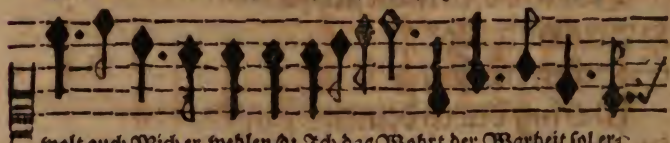 welt auch Mich er wehlen das Ich das Wahrt der Warheit sol ers